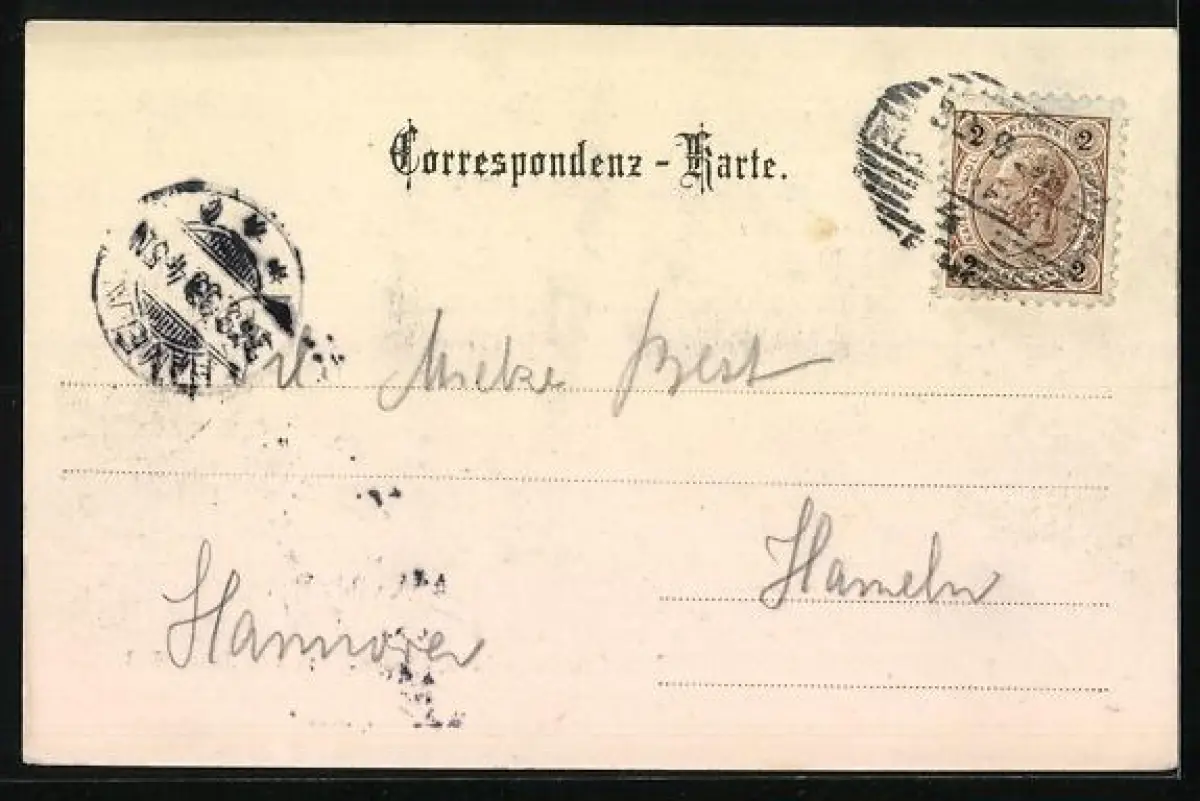 Correspondenz-Karte.
2 2
2 2
HAMELN
4-5N
Mieke Best
Hameln
Hannover